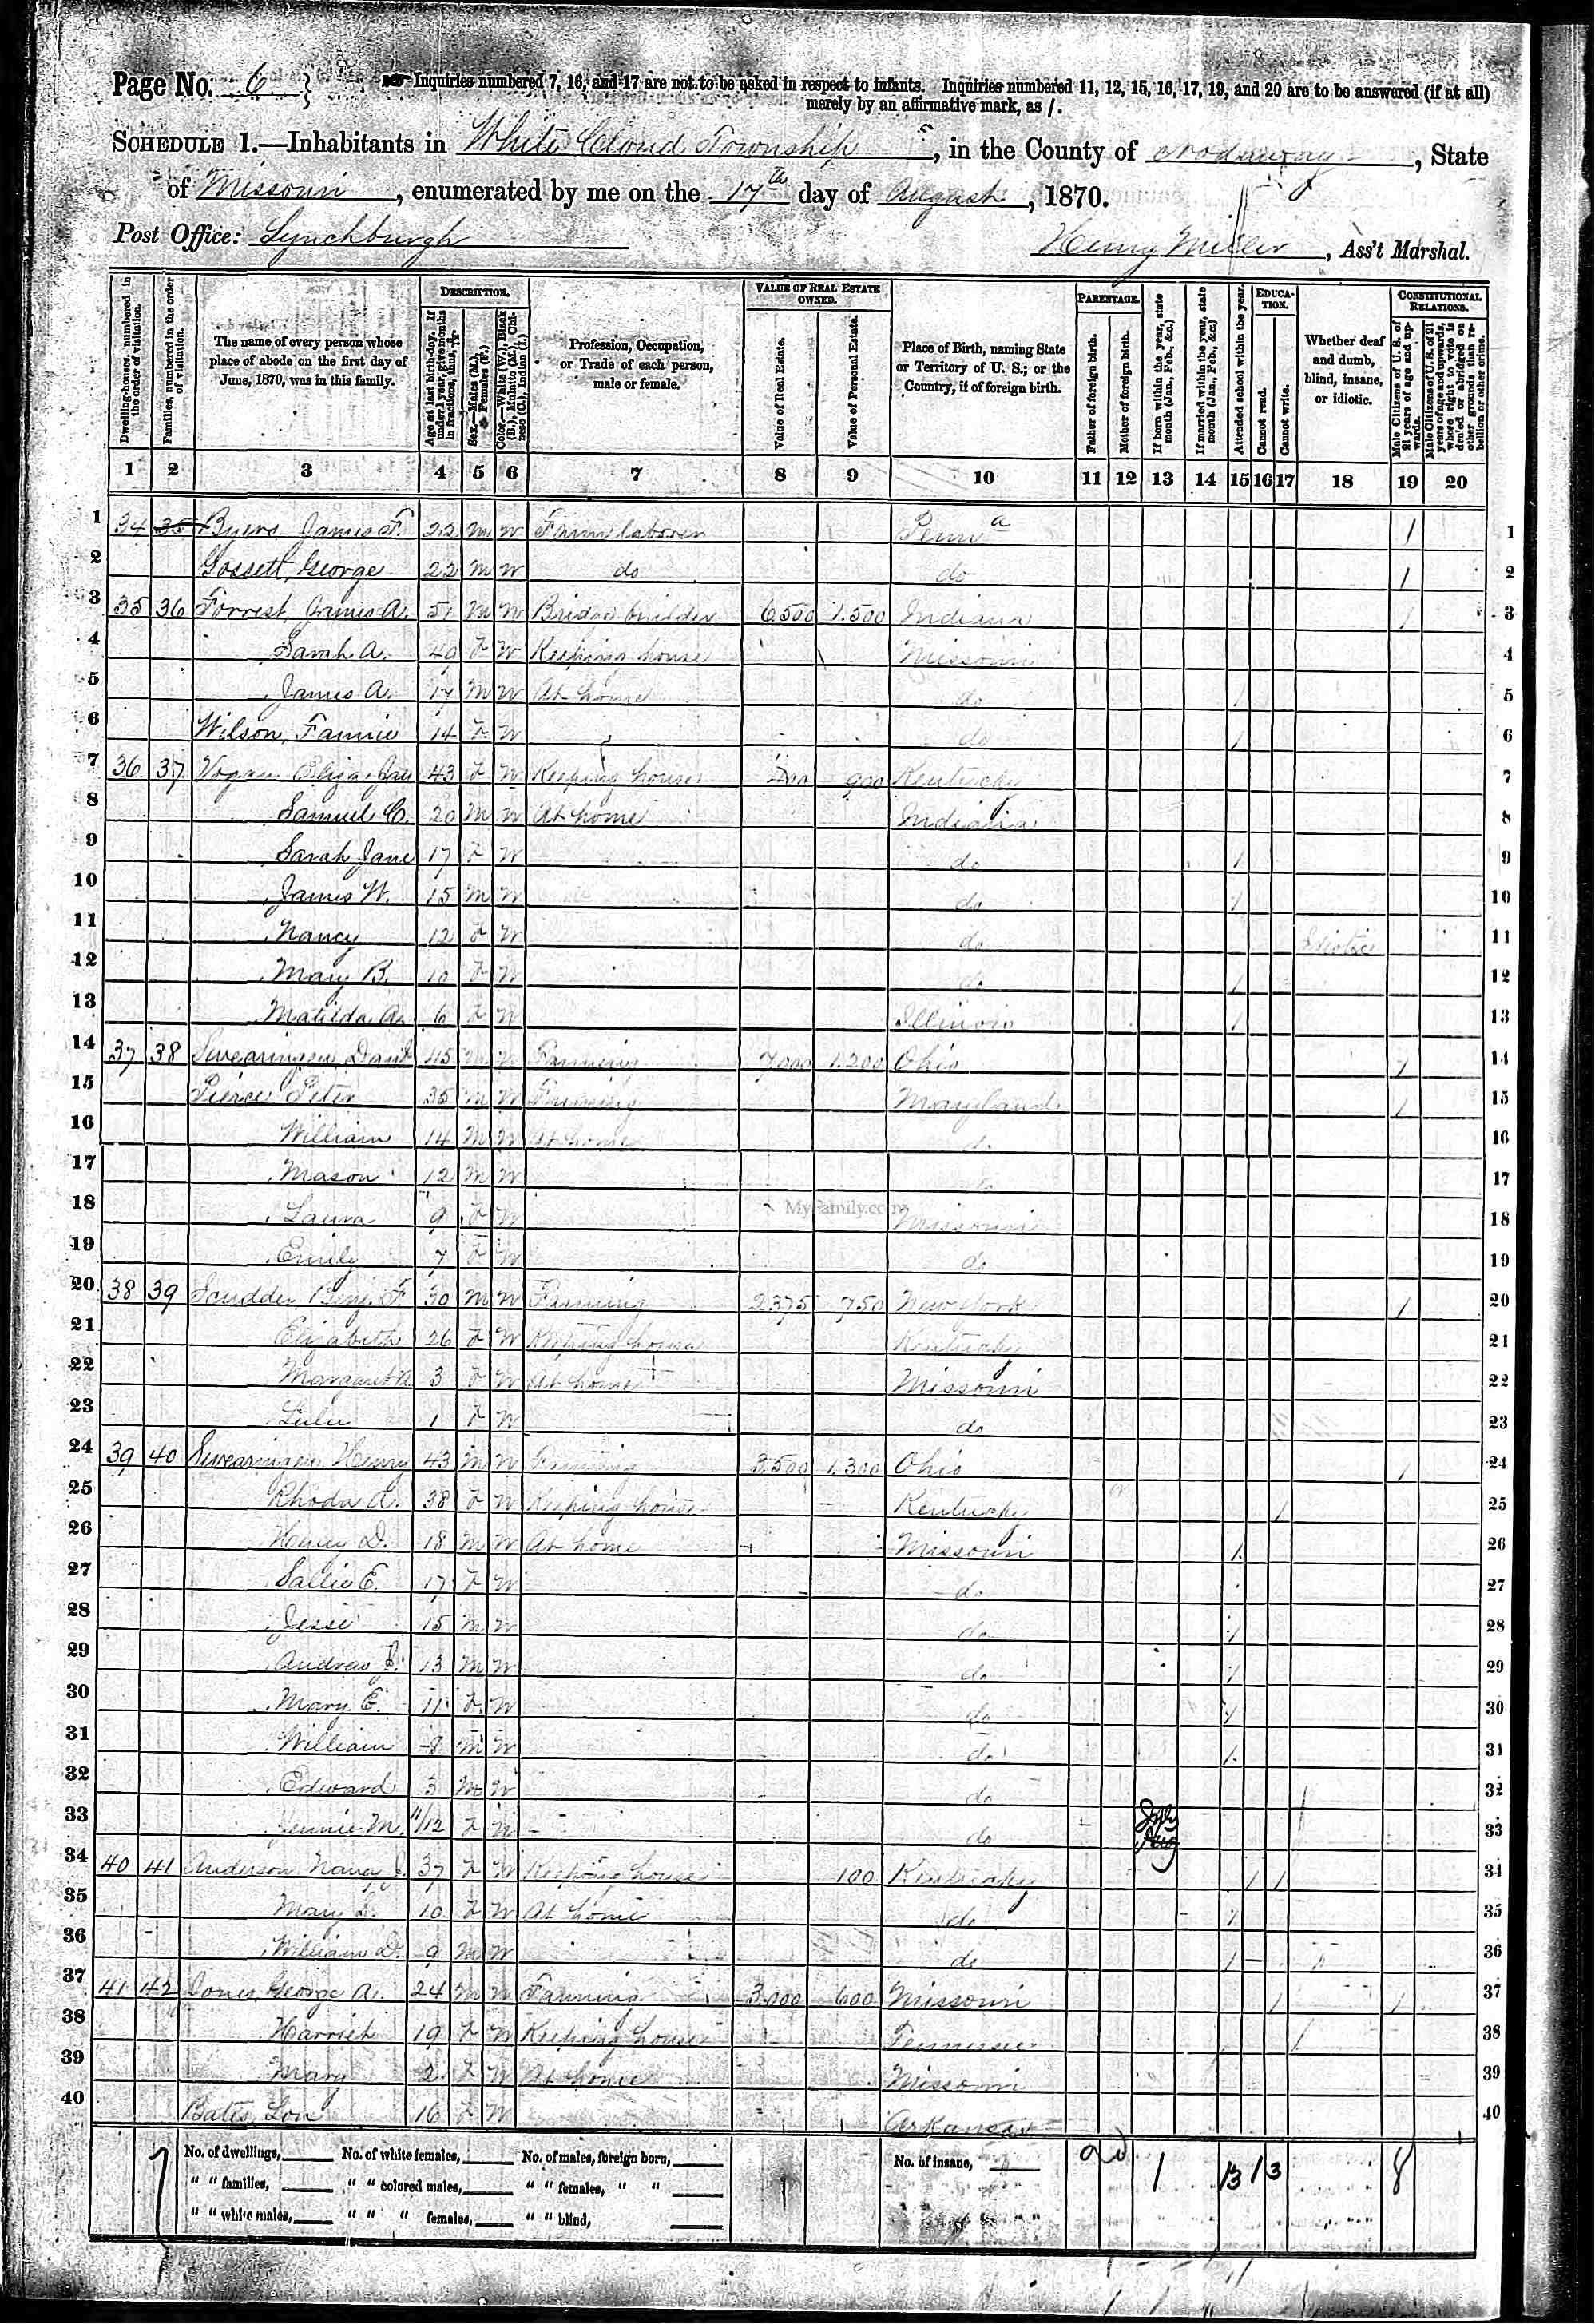 Page No. 6 } Inquiries numbered 7, 16, and 17 are not to be asked in respect to infants. Inquiries numbered 11, 12, 15, 16, 17, 19, and 20 are to be answered (if at all)
merely by an affirmative mark, as /.
SCHEDULE 1.—Inhabitants in White Cloud Township, in the County of Nodaway, State
of Missouri, enumerated by me on the 17th day of August, 1870.
Post Office: Lynchburgh
Henry Miller, Ass't Marshal.
Dwelling-houses, numbered in the order of visitation.
Families, numbered in the order of visitation.
The name of every person whose place of abode on the first day of June, 1870, was in this family.
DESCRIPTION.
Age at last birth-day. If under 1 year, give months in fractions, thus,
Sex.—Males (M.), Females (F.)
Color.—White (W.), Black (B.), Mulatto (M.), Chinese (C.), Indian (I.)
Profession, Occupation, or Trade of each person, male or female.
VALUE OF REAL ESTATE OWNED.
Value of Real Estate.
Value of Personal Estate.
Place of Birth, naming State or Territory of U. S.; or the Country, if of foreign birth.
PARENTAGE.
Father of foreign birth.
Mother of foreign birth.
If born within the year, state month (Jan., Feb., &c.)
If married within the year, state month (Jan., Feb., &c.)
Attended school within the year.
EDUCATION.
Cannot read.
Cannot write.
Whether deaf and dumb, blind, insane, or idiotic.
CONSTITUTIONAL RELATIONS.
Male Citizens of U. S. of 21 years of age and upwards.
Male Citizens of U. S. of 21 years of age and upwards, whose right to vote is denied or abridged on other grounds than rebellion or other crime.
1 2 3 4 5 6 7 8 9 10 11 12 13 14 15 16 17 18 19 20
1 34 35 Byers, James F. 22 M W Farm laborer Penna / 1
2 Gossett, George 22 M W do do / 2
3 35 36 Forrest, James A. 51 M W Bridge builder 6500 1.500 Indiana / 3
4 Sarah A. 40 F W Keeping house Missouri 4
5 James A. 17 M W At home do / 5
6 Wilson, Fannie 14 F W do / 6
7 36 37 Eliza 43 F W Keeping house 900 Kentucky 7
8 Samuel C. 20 M W At home Indiana 8
9 Sarah Jane 17 F W do / 9
10 James W. 15 M W do / 10
11 Nancy 12 F W do Idiotic 11
12 Mary B. 10 F W do / 12
13 Matilda A. 6 F W Illinois / 13
14 37 38 Swearingen, David 45 M W Farming 7000 1.200 Ohio / 14
15 Pierce Peter 35 M W Farming Maryland / 15
16 William 14 M W At home do 16
17 Mason 12 M W do 17
18 Laura 9 F W Missouri 18
MyFamily.com
19 Emily 7 F W do 19
20 38 39 Scudder, Benj. F. 30 M W Farming 2375 750 New York / 20
21 Elizabeth 26 F W Keeping house Kentucky 21
22 Margaret A 3 F W At home Missouri 22
23 Lulu 1 F W do 23
24 39 40 Swearingen Henry 43 M W Farming 3,500 1.300 Ohio / 24
25 Rhoda A. 38 F W Keeping house Kentucky / 25
26 Henry D. 18 M W At home Missouri / 26
27 Sallie E. 17 F W do 27
28 Jesse 15 M W do / 28
29 Andrew J. 13 M W do / 29
30 Mary E. 11 F W do / 30
31 William 8 M W do / 31
32 Edward 3 M W do 32
33 Jennie M. 11/12 F W do July 33
34 40 41 Anderson Nancy J. 37 F W Keeping house 100 Kentucky / / 34
35 Mary 10 F W At home do / 35
36 William D. 9 M W do / 36
37 41 42 Jones, George A. 24 M W Farming 3.000 600 Missouri / / 37
38 Harriet 19 F W Keeping house Tennessee 38
39 Mary 2 F W At home Missouri 39
40 Bates, Lou 16 F W Arkansas 40
No. of dwellings, No. of white females, No. of males, foreign born, No. of insane,
" " families, " " colored males, " " females, " "
" " white males, " " " females, " " blind,
1 13 1 3 8